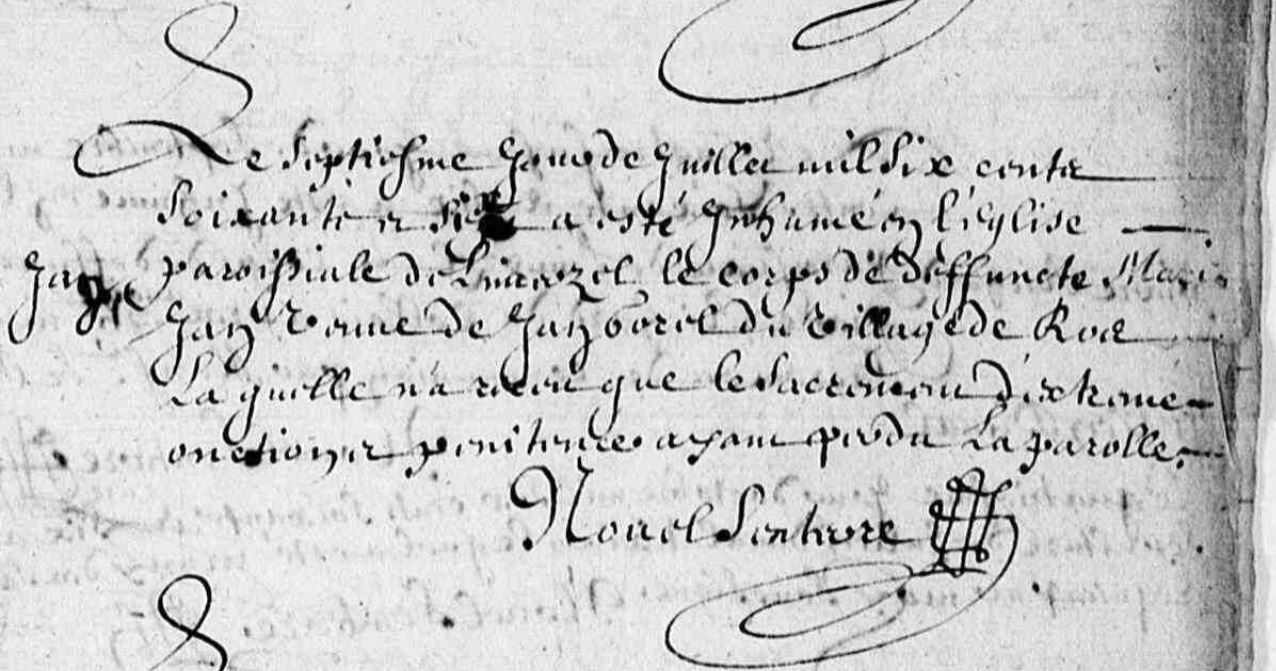 Le Septiesme Jour de Juillet mil six centz
soixante et six a esté Inhumé en l'église
paroissiale de le corps de deffuncte Marie
Jan
Jan veuve de Jan borel du village de Roz
Laquelle n'a receu que le sacrement d'extreme
onction et penitence ayant perdu La parolle.
Nouel